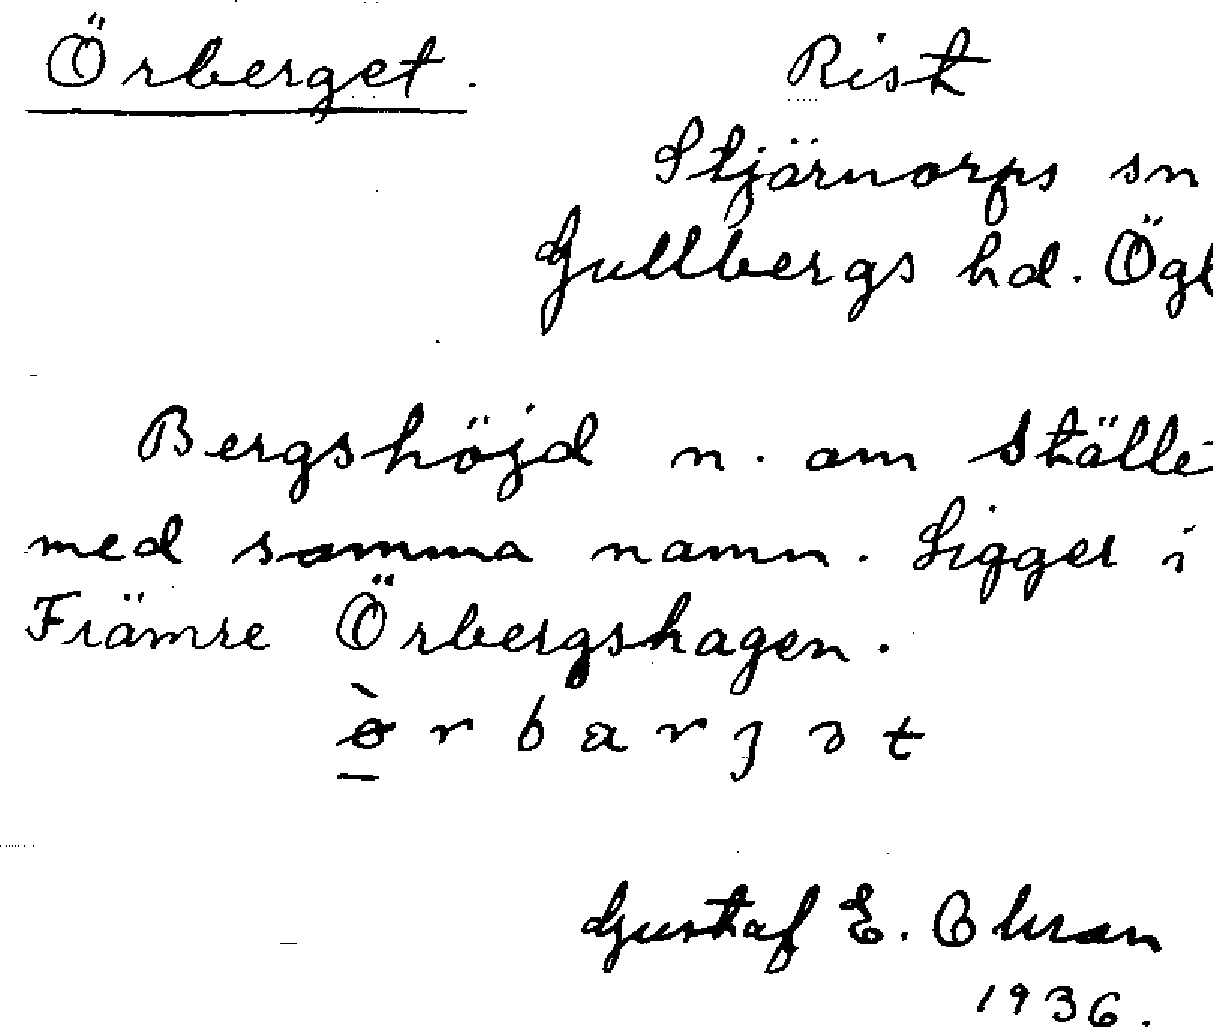 Örberget. Rist
Stjärnorps sn
Gullbergs hd. Ögl
Bergshöjd n. om Ställe
med samma namn. Ligger i
Främre Örbergshagen.
1936.